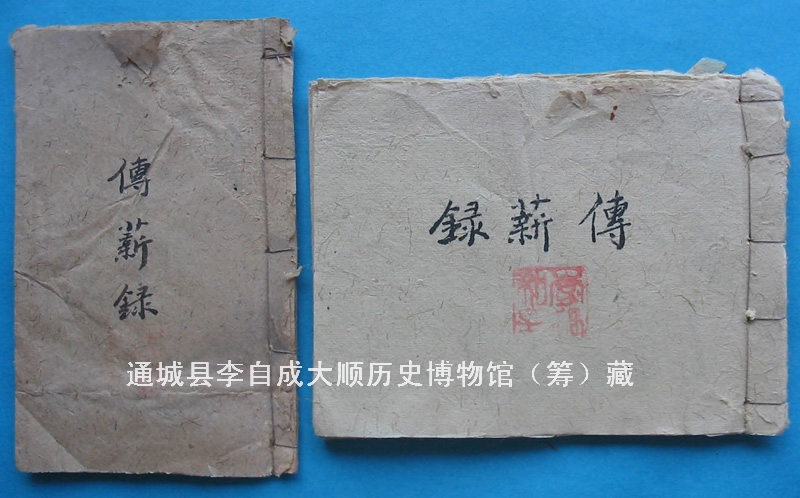 傳薪録
傳薪録
通城县李自成大顺历史博物馆（筹）藏